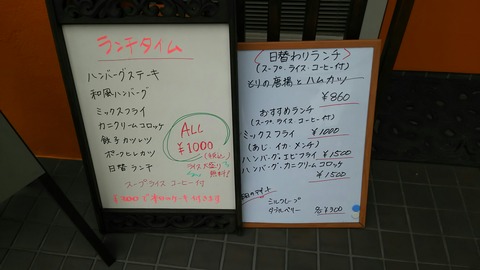 ランチタイム
ハンバーグステーキ
和風ハンバーグ
ミックスフライ
カニクリームコロッケ
餃子カツレツ
ポークヒレカツ
日替ランチ
ALL
¥1000
(税込)
ライス大盛り
無料!
スープライスコーヒー付
付きます
(日替わりランチ)
(スープ・ライス・コーヒー付)
とりの唐揚とハムカツ
¥860
おすすめランチ
(スープ.ライス.コーヒー付)
ミックスフライ ¥1000
(あじ・イカ・メンチ)
ハンバーグ・エビフライ ¥1500
ハンバーグ・カニクリームコロッケ
¥1500
ミルクレープ
各¥300